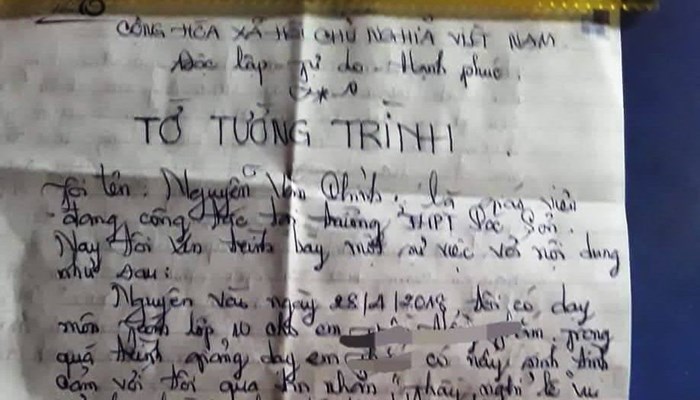 CỘNG HÒA XÃ HỘI CHỦ NGHĨA VIỆT NAM
Độc lập - tự do - Hạnh phúc.
TỜ TƯỜNG TRÌNH
Tôi tên: Nguyễn Văn là giáo viên
đang công tác tại trường THPT Sóc Sơn.
Nay tôi xin trình bày một sự việc với nội dung
như sau:
Nguyên vào ngày 28/1/2018, tôi có dạy
môn lớp 10 em trong
quá trình giảng dạy em có nảy sinh tình
cảm với tôi qua tin nhắn "thầy nghỉ lễ vui